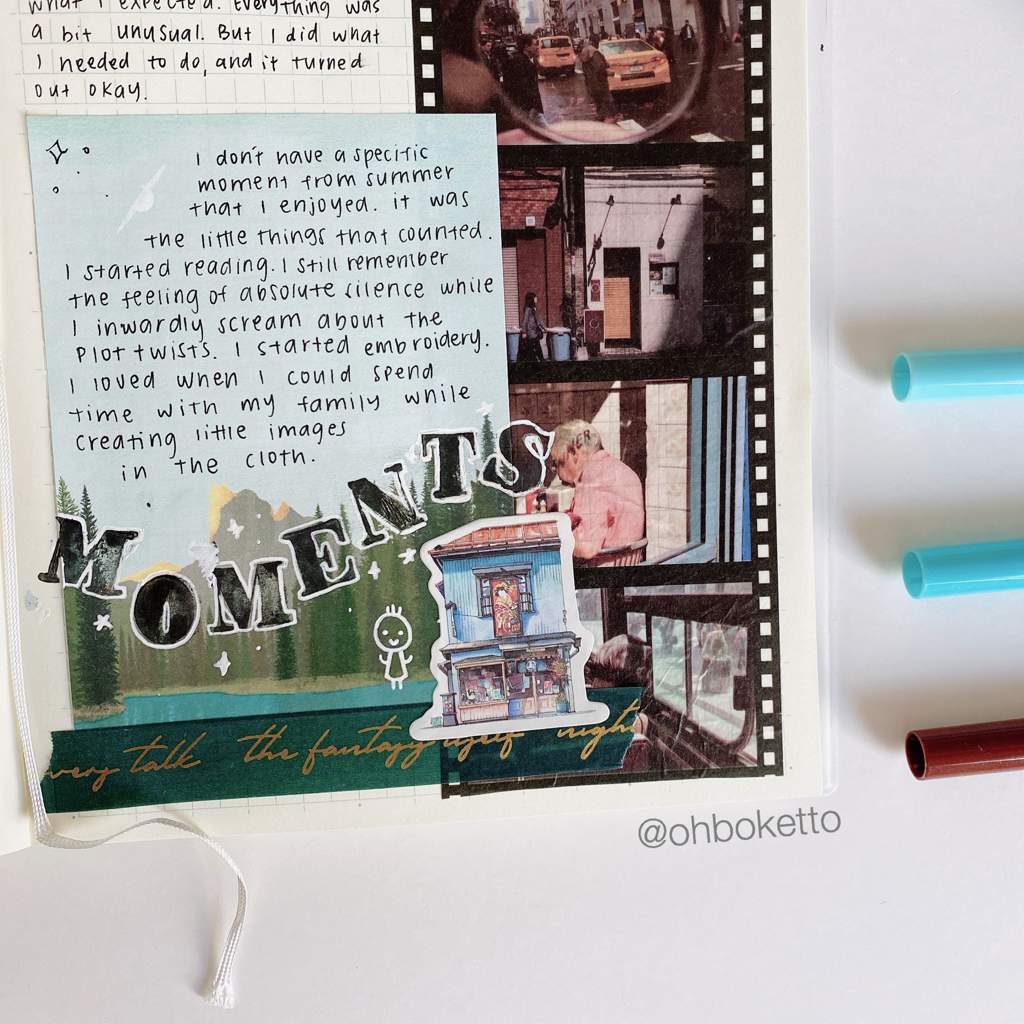 what I expected. Everything was
a bit unusual. But I did what
I needed to do, and it turned
out okay.
I don't have a specific
moment from summer
that I enjoyed. it was
the little things that counted.
I started reading. I still remember
the feeling of absolute silence while
I inwardly scream about the
plot twists. I started embroidery.
I loved when I could spend
time with my family while
creating little images
in the cloth.
MOMENTS
very talk the fantasy itself night
@ohboketto